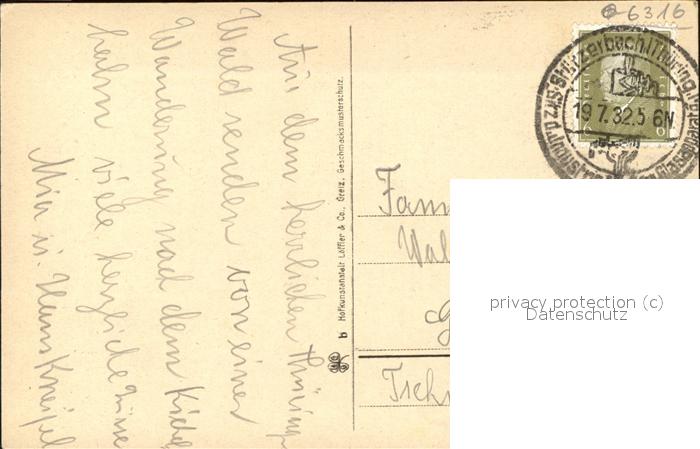 6316
Stützerbach (Thüring
19.7.32.5-6N
Aus dem herrlichen Thüringer
Wald senden von einer
Wanderung nach dem Kickel
hahn viele herzliche Grüsse
Mia u. Hans Kneifel
b Hofkunstanstalt Löffler & Co., Greiz. Geschmacksmusterschutz.
Fam
Wal
G
Tsch
privacy protection (c)
Datenschutz